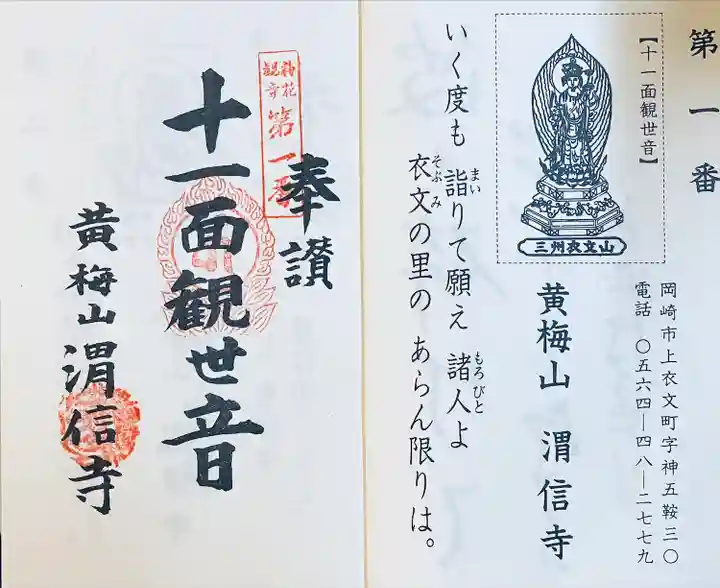 第一番
【十一面観世音】
三州衣文山
岡崎市上衣文町字神五鞍三〇
電話 〇五六四―四八―二七七九
黄梅山 渭信寺
いく度も 詣りて願え 諸人よ
まい
もろびと
衣文の里の あらん限りは。
そぶみ
観音
第一番
奉讃
十一面観世音
黄梅山渭信寺